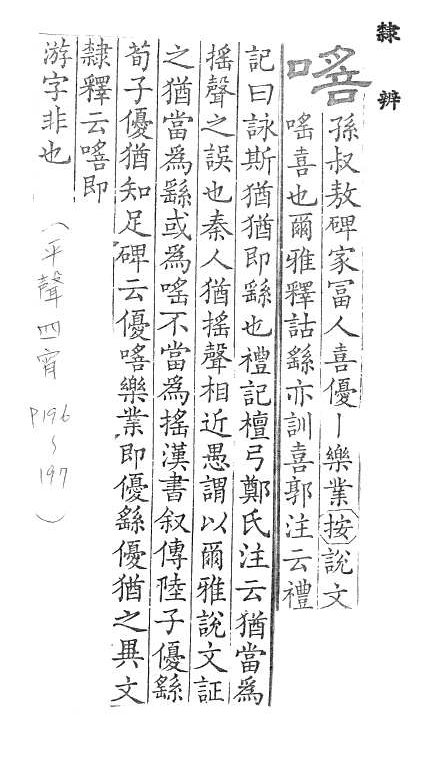 隸辨
嗂
孫叔敖碑家冨人喜優丨樂業按說文
嗂喜也爾雅釋詁繇亦訓喜郭注云禮
記曰詠斯猶猶即繇也禮記檀弓鄭氏注云猶當為
搖聲之誤也秦人猶搖聲相近愚謂以爾雅說文証
之猶當為繇或為嗂不當為搖漢書叙傳陸子優繇
荀子優猶知足碑云優嗂樂業即優繇優猶之異文
隸釋云嗂即
游字非也
(平聲四宵
P196
~
197
)